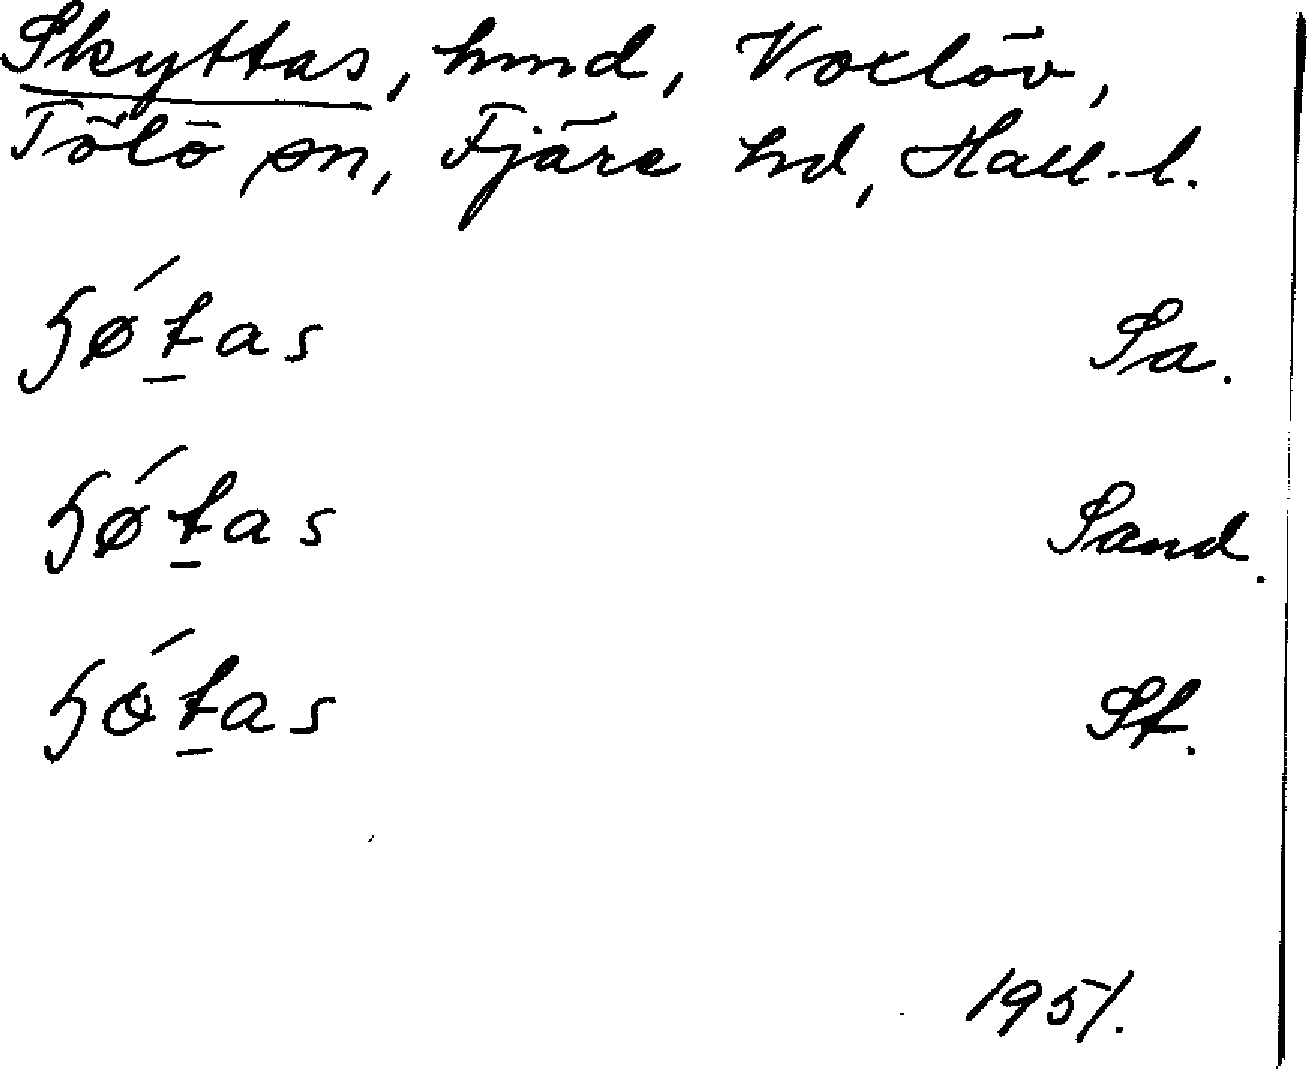 Skyttas, hmd, Voxlöv,
Tölö sn, Fjäre hd, Hall. l.
ɧø´t̠as Sa.
ɧø´t̠as Sand.
ɧɵ´t̠as St.
1951.